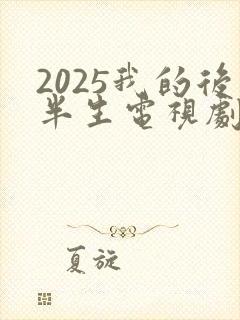 2025我的後
半生電視劇
夏旋